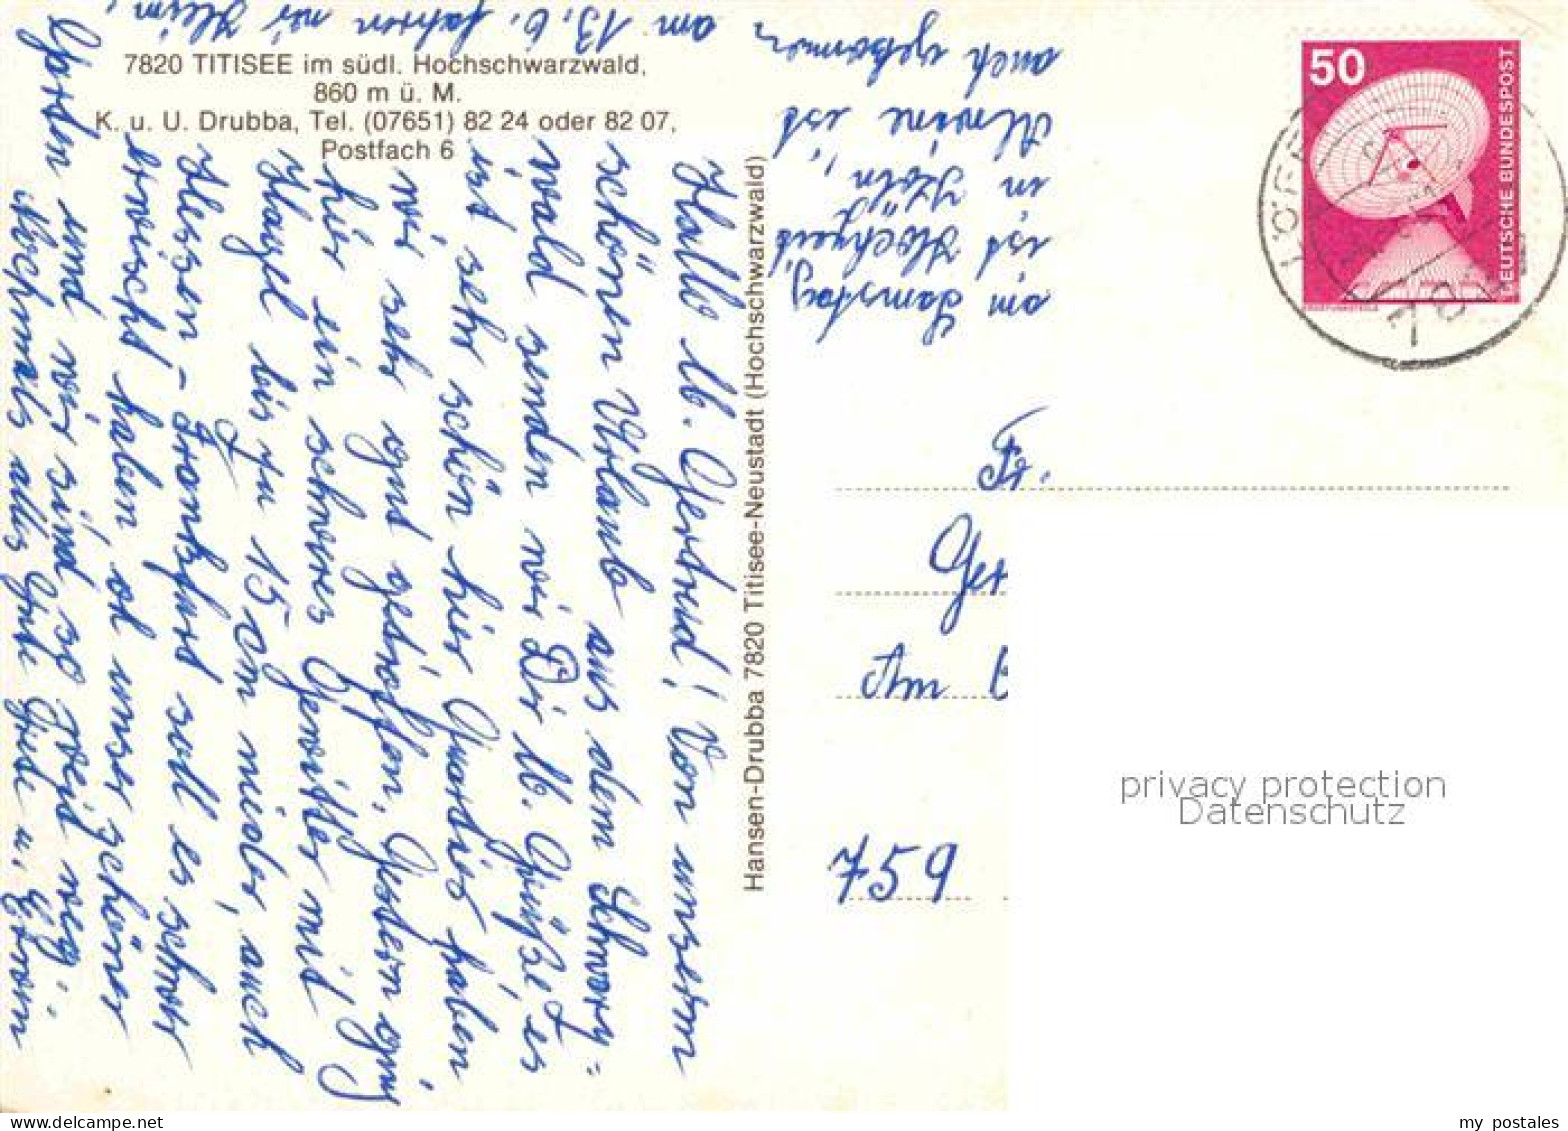 7820 TITISEE im südl. Hochschwarzwald,
860 m ü. M.
K. u. U. Drubba, Tel. (07651) 82 24 oder 82 07,
Postfach 6
Hallo lb. Gertrud! Von unserm
schönen Urlaub aus dem Schwarz=
wald senden wir Dir lb. Grüße, es
ist sehr schön hier Quartier haben
wir sehr gut getroffen, Gestern ging
hier ein schweres Gewitter mit
Hagel bis zu 15 cm nieder, auch
Hessen-Frankfurt soll es schwer
erwischt haben, ob unser schöner
Garten und wir sind so weit weg.
Nochmals alles Gute Grete u. Erwin
am 13. 6. fahren wir Heim,
auch gekommen
Alwine ist
in Köln,
ist Hochzeit
am Samstag
Hansen-Drubba 7820 Titisee-Neustadt (Hochschwarzwald)
50
DEUTSCHE BUNDESPOST
Fr.
Ger
Am
759
privacy protection
Datenschutz
my postales